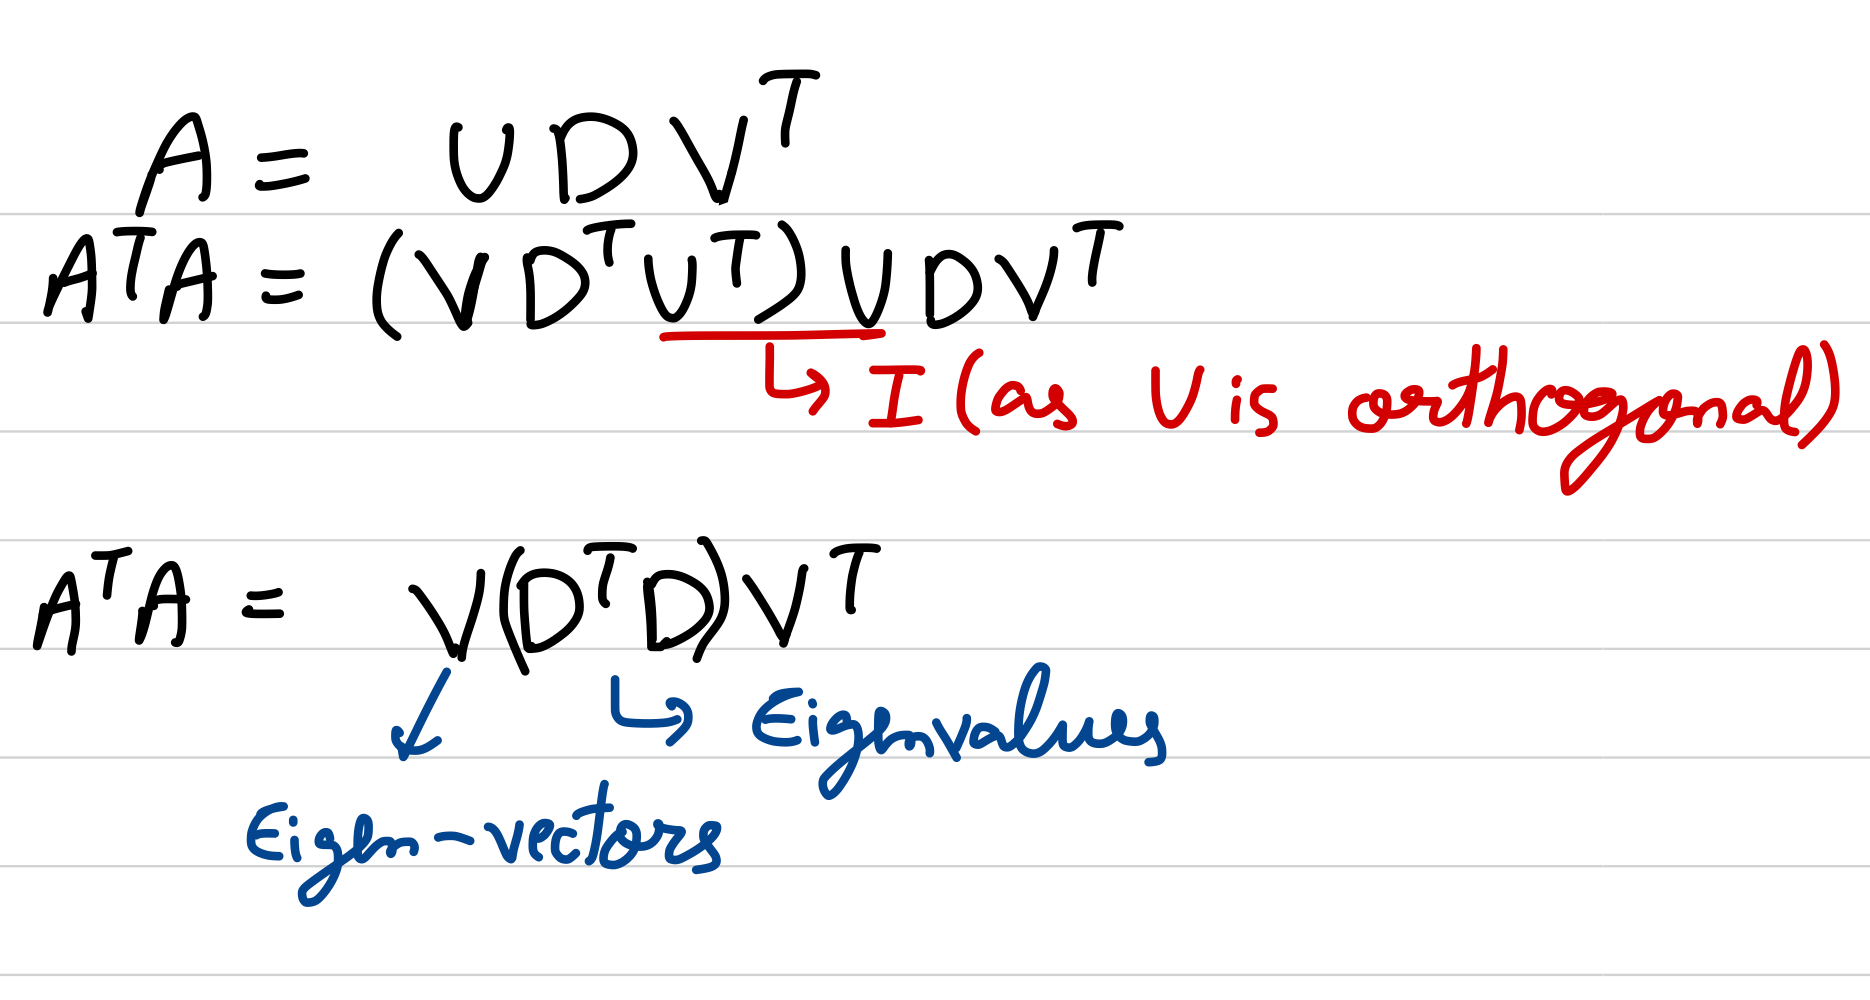 A = U D Vᵀ
AᵀA = (V Dᵀ Uᵀ) U D Vᵀ
I (as U is orthogonal)
AᵀA = V(DᵀD)Vᵀ
Eigenvalues
Eigen-vectors